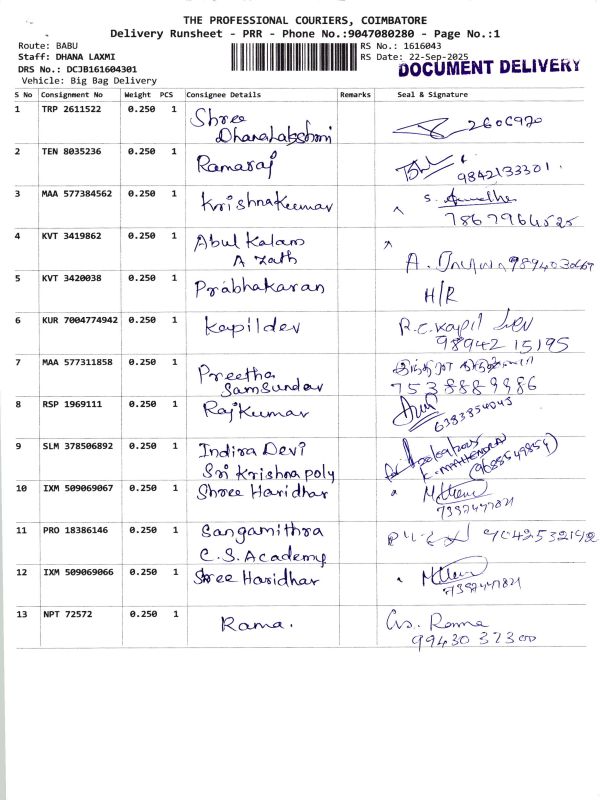 THE PROFESSIONAL COURIERS, COIMBATORE
Delivery Runsheet - PRR - Phone No.:9047080280 - Page No.:1
Route: BABU
RS No.: 1616043
Staff: DHANA LAXMI
RS Date: 22-Sep-2025
DOCUMENT DELIVERY
DRS No.: DCJB161604301
Vehicle: Big Bag Delivery
S No Consignment No Weight PCS Consignee Details Remarks Seal & Signature
1 TRP 2611522 0.250 1 Shree
DhanaLakshmi
2 TEN 8035236 0.250 1 Ramaraj
9842133301.
3 MAA 577384562 0.250 1 Krishnakumar
7867964525
4 KVT 3419862 0.250 1 Abul Kalam
A zath A.
5 KVT 3420038 0.250 1 Prabhakaran H/R
6 KUR 7004774942 0.250 1 Kapildev R.C. Kapil Dev
98942 15195
7 MAA 577311858 0.250 1 Preetha
Samsundar 7538889986
8 RSP 1969111 0.250 1 Rajkumar
9 SLM 378506892 0.250 1 Indira Devi
Sri Krishna poly K. MAHENDRAN
10 IXM 509069067 0.250 1 Shree Haridhar
7397447821
11 PRO 18386146 0.250 1 Sangamithra
C.S. Academy
12 IXM 509069066 0.250 1 Shree Haridhar
7397447821
13 NPT 72572 0.250 1 Rama. Rama
99430 32300